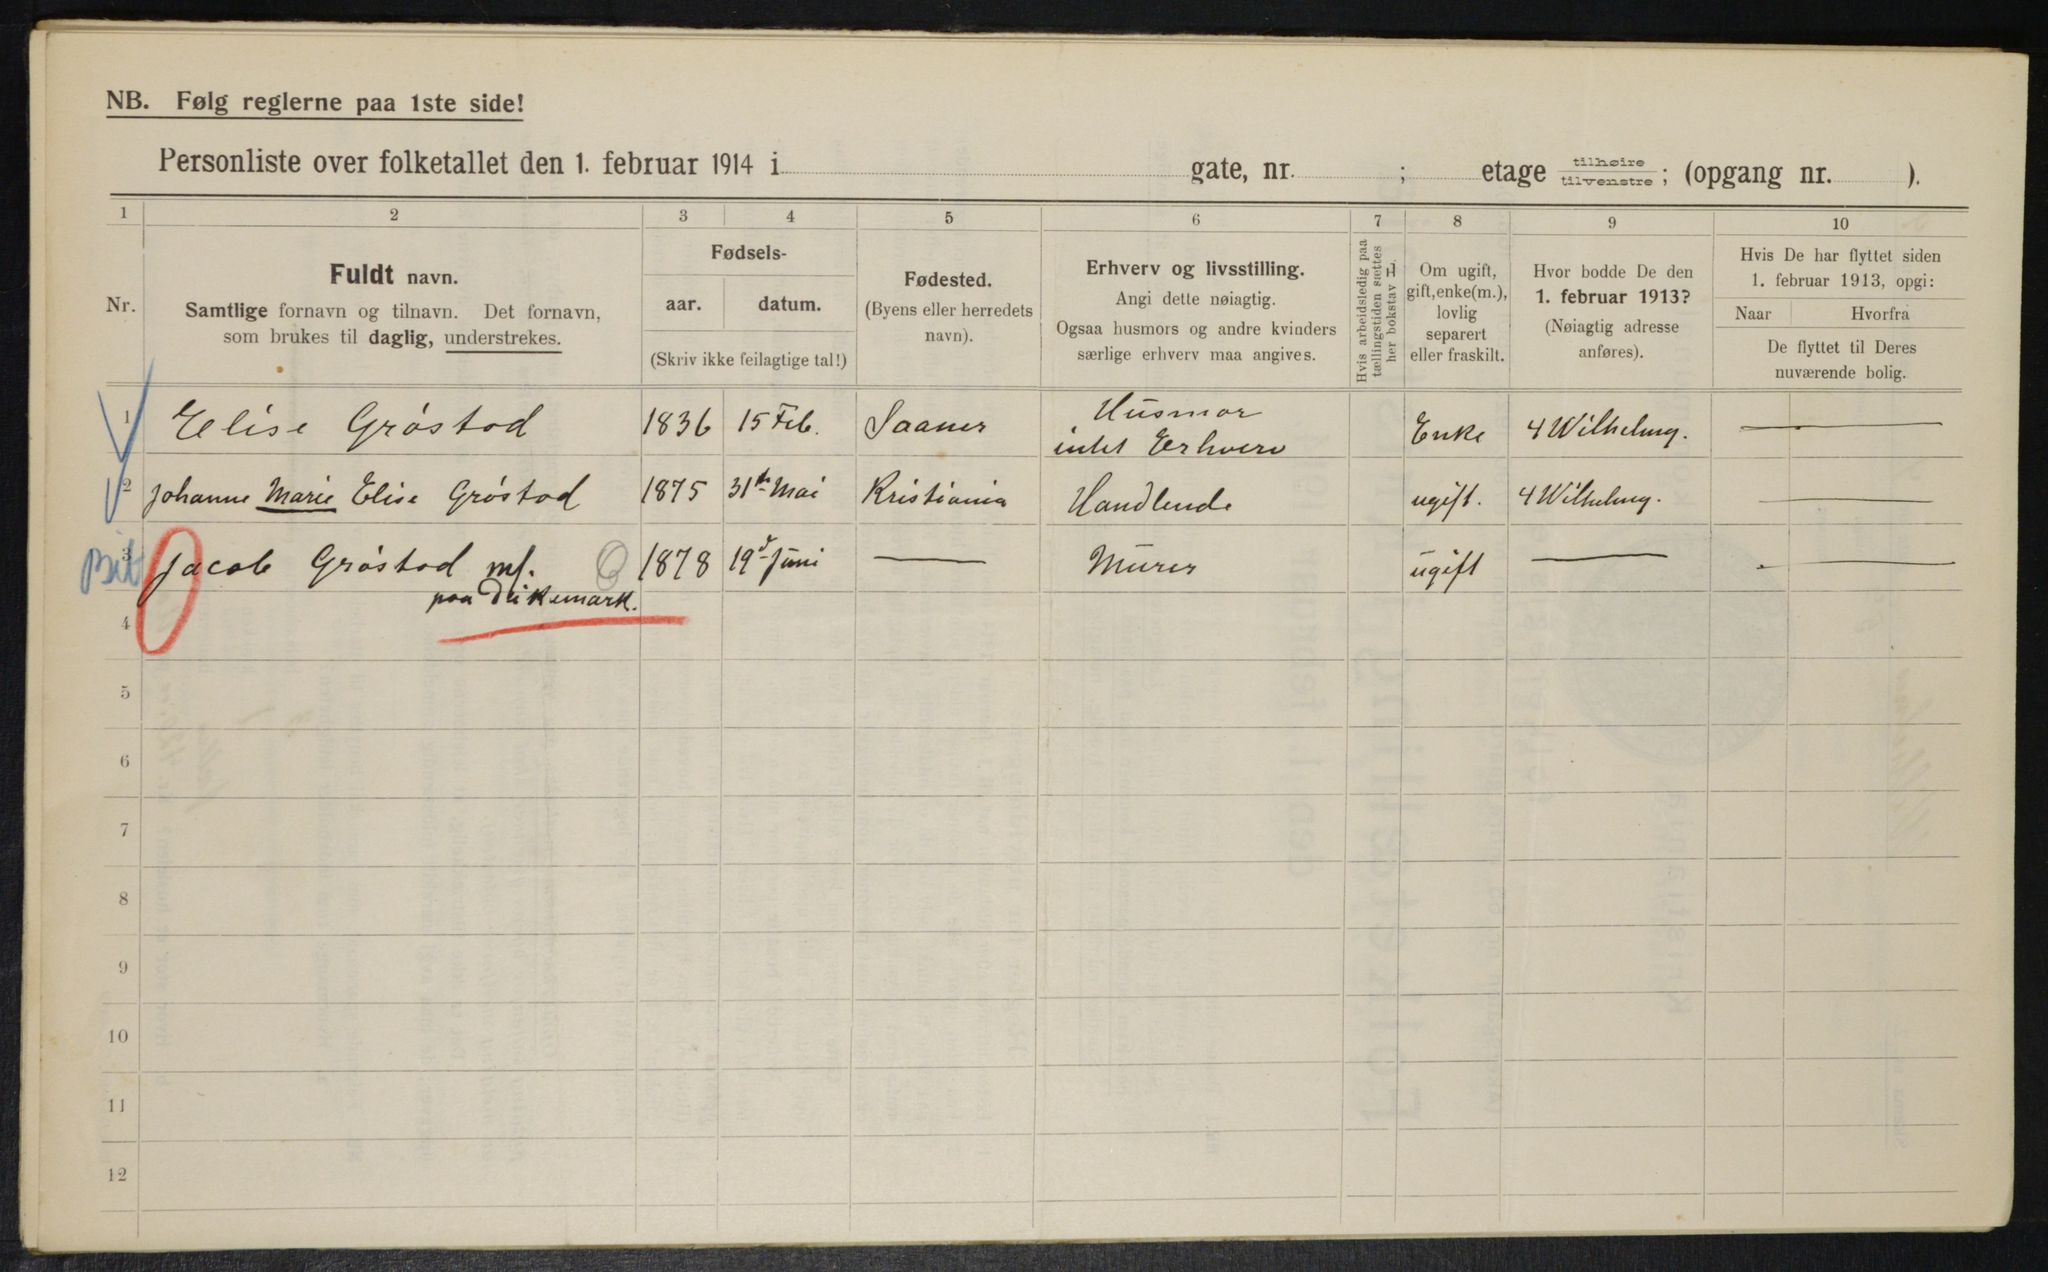 NB. Følg reglerne paa 1ste side!
Personliste over folketallet den 1. februar 1914 i gate, nr. ; etage tilhøire tilvenstre; (opgang nr. ).
1 2 3 4 5 6 7 8 9 10
Nr.
Fuldt navn.
Samtlige fornavn og tilnavn. Det fornavn,
som brukes til daglig, understrekes.
Fødsels-
aar. datum.
(Skriv ikke feilagtige tal!)
Fødested.
(Byens eller herredets
navn).
Erhverv og livsstilling.
Angi dette nøiagtig.
Ogsaa husmors og andre kvinders
særlige erhverv maa angives.
Hvis arbeidsledig paa
tællingstiden sættes
her bokstav L.
Om ugift,
gift, enke(m.),
lovlig
separert
eller fraskilt.
Hvor bodde De den
1. februar 1913?
(Nøiagtig adresse
anføres).
Hvis De har flyttet siden
1. februar 1913, opgi:
Naar Hvorfra
De flyttet til Deres
nuværende bolig.
1 Elise Gróstad 1836 15 Feb. Saaner Husmor
intet Erhverv Enke 4 Wilhelmg.
2 Johanne Marie Elise Gróstad 1875 31te Mai Kristiania Handlende ugift. 4 Wilhelmg.
3 Jacob Gróstad mf. 1878 19d Juni Murer ugift
paa Dikemark.
4
5
6
7
8
9
10
11
12